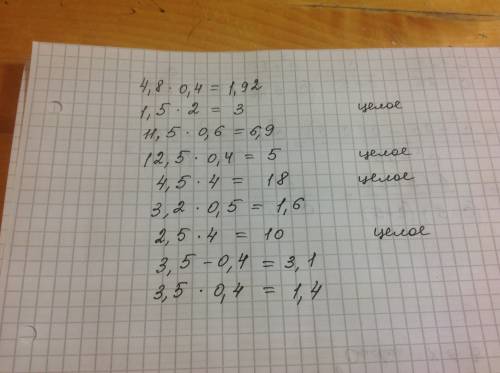 4,8 · 0,4 = 1,92
1,5 · 2 = 3 целое
11,5 · 0,6 = 6,9
12,5 · 0,4 = 5 целое
4,5 · 4 = 18 целое
3,2 · 0,5 = 1,6
2,5 · 4 = 10 целое
3,5 - 0,4 = 3,1
3,5 · 0,4 = 1,4